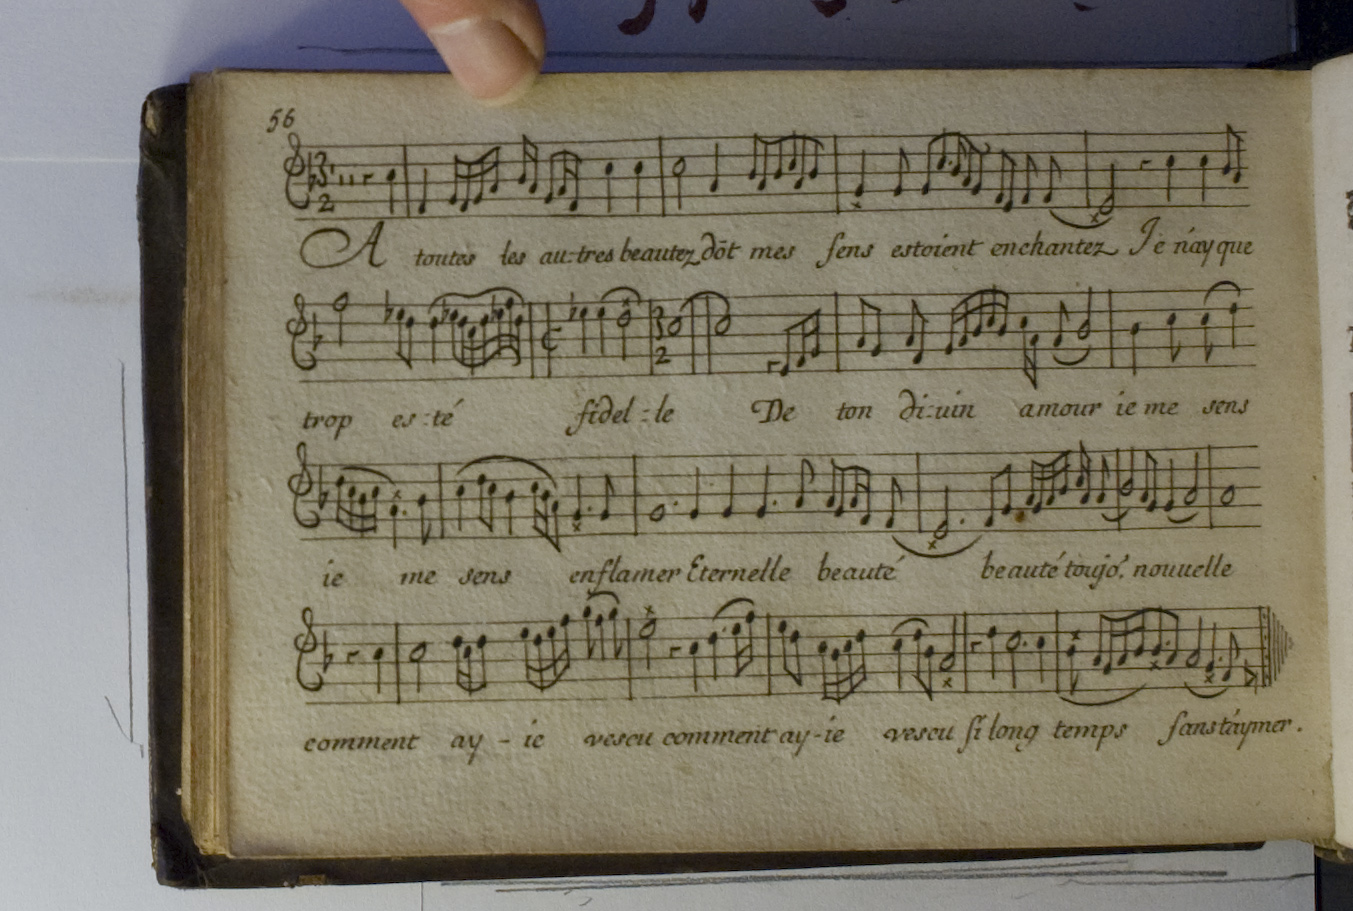 56
A toutes les au:tres beautez dōt mes sens estoient enchantez Ie n'ay que
trop es:té fidel:le De ton di:uin amour ie me sens
ie me sens enflamer Eternelle beauté beauté toujo.' nouuelle
comment ay-ie vescu comment ay-ie vescu si long temps sans t'aymer.